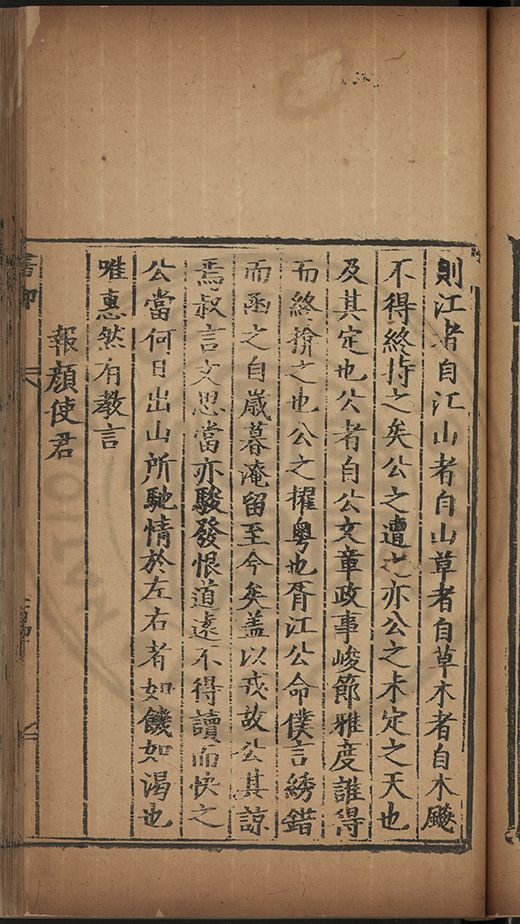 則江者自江山者自山草者自草木者自木飈
不得終恃之矣公之遭之亦公之未定之天也
及其定也公者自公文章政事峻節雅度誰得
而終揜之也公之擢粤也胥江公命僕言綉錯
而函之自嵗暮淹留至今矣盖以戎故公其諒
焉叔言文思當亦駿發恨道遠不得讀而快之
公當何日出山所馳情於左右者如饑如渴也
唯惠然有教言
報顔使君